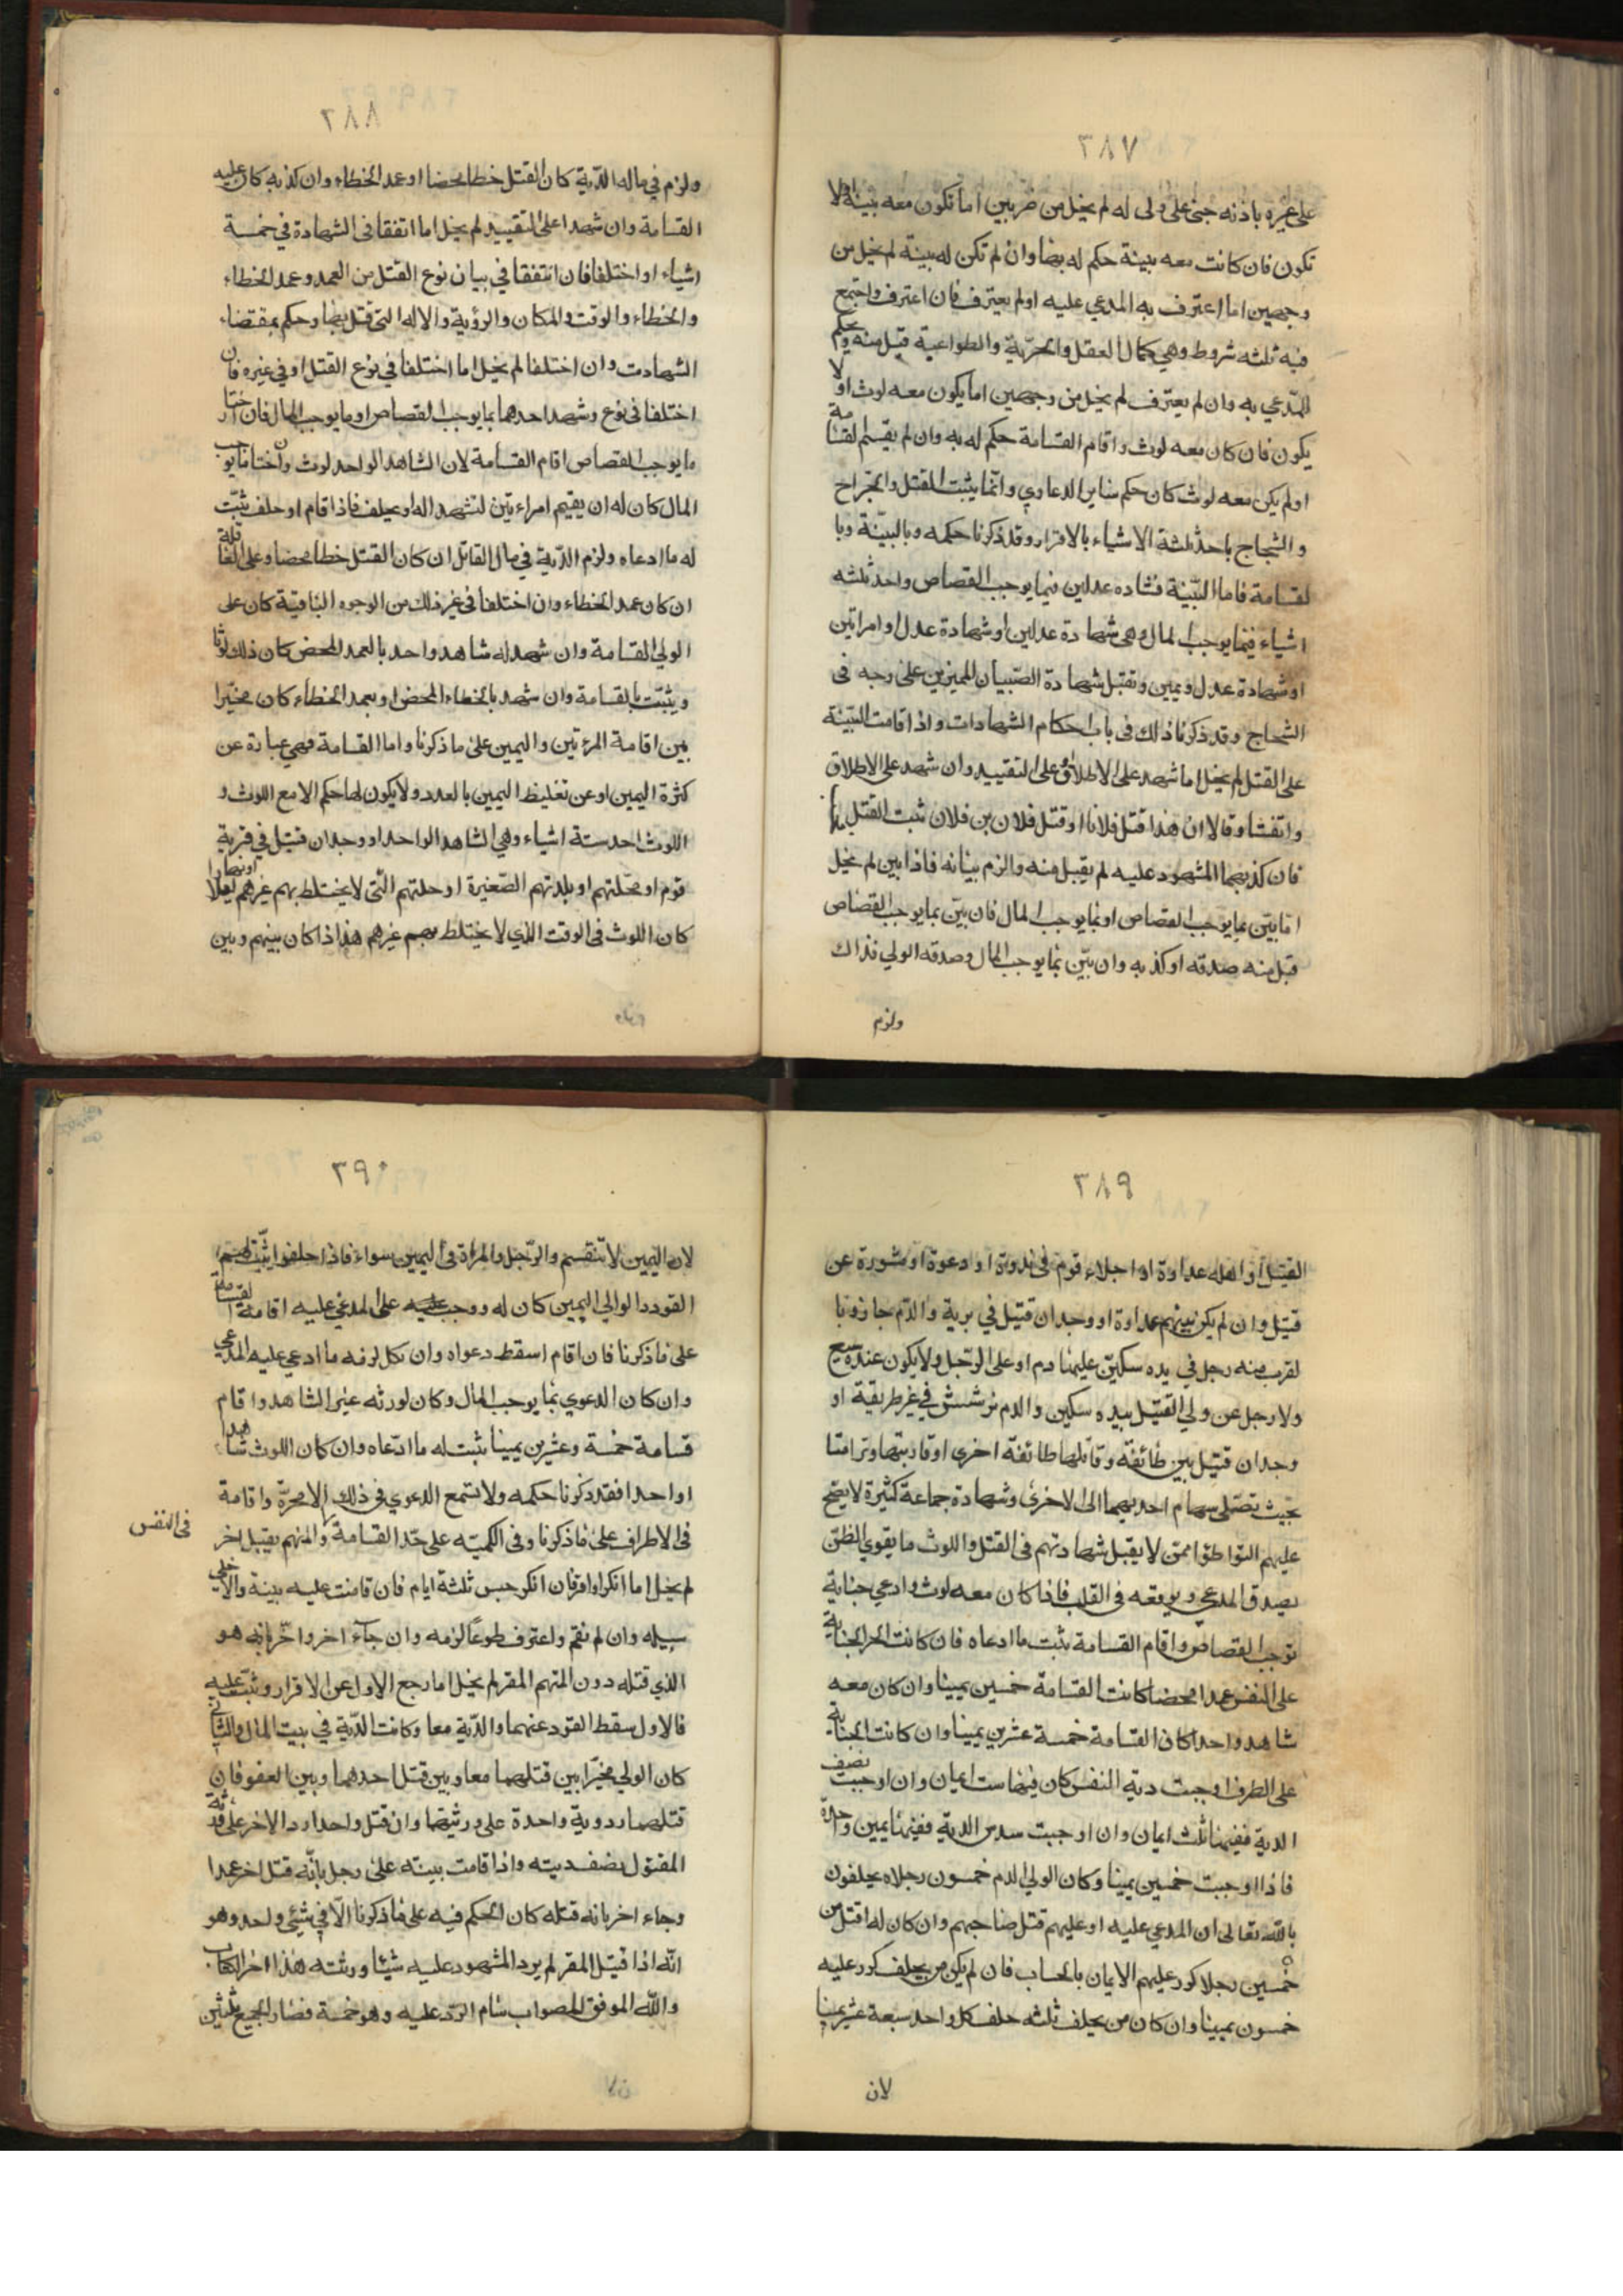 ٣٨٧
على غيره باذنه جنى على ولى له لم يخل من ضربين اما تكون معه بينة اولا
تكون فان كانت معه بينة حكم له بها وان لم تكن له بينة لم يخل من
وجهين اما اعترف به المدعي عليه اولم يعترف فان اعترف واجتمع
فيه ثلثه شروط وهي كمال العقل والحرية والطواعية قبل منه وحكم
للمدعي به وان لم يعترف لم يخل من وجهين اما يكون معه لوث او لا
يكون فان كان معه لوث واقام القسامة حكم له به وان لم يقسم القسامة
اولم يكن معه لوث كان حكم ساير الدعاوي وانما يثبت القتل والجراح
والشجاج باحد ثلثة الاشياء بالاقرار وقد ذكرنا حكمه وبالبينة وبا
لقسامة فاما البينة فشاده عدلين فيما يوجب القصاص واحد ثلثه
اشياء فيما يوجب المال وهي شهادة عدلين او شهادة عدل وامراتين
او شهادة عدل ويمين وتقبل شهادة الصبيان المميزين على وجه فى
الشجاج وقد ذكرنا ذلك فى باب احكام الشهادات واذا قامت البينة
على القتل لم يخل اما شهد على الاطلاق وعلى التقييد وان شهد على الاطلاق
واتفقا وقالا ان هذا قتل فلانا او قتل فلان بن فلان ثبت القتل
فان كذبهما المشهود عليه لم يقبل منه والزم بيانه فاذا بين لم يخل
اما بين بما يوجب القصاص او بما يوجب المال فان بين بما يوجب القصاص
قبل منه صدقه او كذبه وان بين بما يوجب المال وصدقه الولي فذاك
ولزم
٣٨٨
ولزم في ماله الدية كان القتل خطا محضا او عمد الخطاء وان كذبه كان عليه
القسامة وان شهدا على التقييد لم يخل اما اتفقا فى الشهادة في خمسة
اشياء او اختلفا فان اتفقا في بيان نوع القتل من العمد وعمد الخطاء
والخطاء والوقت والمكان والرؤية والاله التي قتل بها وحكم بمقتضاء
الشهادت وان اختلفا لم يخل اما اختلفا في نوع القتل او في غيره فان
اختلفا في نوع وشهد احدهما بما يوجب القصاص او ما يوجب المال فان اختار
ما يوجب القصاص اقام القسامة لان الشاهد الواحد لوث وان اختار ما يوجب
المال كان له ان يقيم امراءتين لتشهد اله او يحلف فاذا اقام او حلف ثبت
له ما ادعاه ولزم الدية في مال القاتل ان كان القتل خطا محضا وعلى القاتلة
ان كان عمد الخطاء وان اختلفا في غير ذلك من الوجوه الباقية كان على
الولي القسامة وان شهد له شاهد واحد بالعمد المحض كان ذلك لوثا
ويثبت بالقسامة وان شهد بالخطاء المحض او بعمد الخطاء كان مخيرا
بين اقامة المرءتين واليمين على ما ذكرنا واما القسامة فهي عبارة عن
كثرة اليمين او عن تغليظ اليمين بالعدد ولا يكون لها حكم الا مع اللوث و
اللوث احد ستة اشياء وهي الشاهد الواحد او وجدان قتيل في قرية
قوم او محلتهم او بلدتهم الصغيرة او حلتهم التي لا يختلط بهم غيرهم ليلا او نهارا
كان اللوث فى الوقت الذي لا يختلط بهم غيرهم هذا اذا كان بينهم وبين
٣٨٩
القتيل او اهله عداوة او اجلاء قوم فى ندوة او دعوة او مشورة عن
قتيل وان لم يكن بينهم عداوة او وجدان قتيل في برية والدم جار وبا
لقرب منه رجل في يده سكين عليها دم او على الرجل ولا يكون عنده سبع
ولا رجل عن ولي القتيل بيده سكين والدم ترشش في غير طريقة او
وجدان قتيل بين طائفة وقاتلها طائفة اخرى او قاربتها وترامتا
بحيث تصل سهام احديهما الى الاخرى وشهادة جماعة كثيرة لا يصح
عليهم التواطؤا ممن لا يقبل شهادتهم فى القتل واللوث ما يقوي الظن
بصدق المدعي ويوقعه فى القلب فاذا كان معه لوث وادعي جناية
توجب القصاص واقام القسامة ثبت ما ادعاه فان كانت الجناية
على النفس عمدا محضا كانت القسامة خمسين يمينا وان كان معه
شاهد واحد كان القسامة خمسة عشرين يمينا وان كانت الجناية
على الطرف اوجبت دية النفس كان فيها ست ايمان وان اوجبت نصف
الدية ففيها ثلث ايمان وان اوجبت سدس الدية ففيها يمين واحدة
فاذا اوجبت خمسين يمينا وكان الولي الدم خمسون رجلاه يحلفون
بالله تعالى ان المدعي عليه او عليهم قتل صاحبهم وان كان له اقل من
خمسين رجلا كور عليهم الايمان بالحساب فان لم يكن من يحلف كرر عليه
خمسون يمينا وان كان من يحلف ثلثه حلف كل واحد سبعة عشر يمينا
لان
٣٩٠
لان اليمين لا تنقسم والرجل والمراة فى اليمين سواء فاذا حلفوا ثبت لهم
القود الوالي اليمين كان له ووجب عليه على المدعي عليه اقامة القسامة
على ما ذكرنا فان اقام اسقط دعواه وان نكل لزمه ما ادعي عليه المدعي
وان كان الدعوي بما يوجب المال وكان لورثه غير الشاهد واقام
قسامة خمسة وعشرين يمينا ثبت له ما ادعاه وان كان اللوث شاهدا
او احدا فقد ذكرنا حكمه ولا تسمع الدعوي فى ذلك الا محررة واقامة
فى النفس
فى الاطراف على ما ذكرنا وفى الكميه على حد القسامة والمتهم بقتل اخر
لم يخل اما انكر او اقر فان انكر حبس ثلثة ايام فان قامت عليه بينة والا خلي
سبيله وان لم تقم واعترف طوعا لزمه وان جآء اخر واقر بانه هو
الذي قتله دون المتهم المقر لم يخل اما رجع الاول عن الاقرار وثبت عليه
فالاول سقط القود عنهما والدية معا وكانت الدية في بيت المال والثاني
كان الولي مخيرا بين قتلهما معا وبين قتل احدهما وبين العفو فان
قتلهما رد دية واحدة على ورثتهما وان قتل واحدا رد الاخر على ورثة
المقتول نصف ديته واذا قامت بينة على رجل بانه قتل اخر عمدا
وجاء اخر بانه قتله كان الحكم فيه على ما ذكرنا الا في شئي واحد وهو
انه اذا قتل المقر لم يرد المشهود عليه شيئا ورثته هذا اخر الكتاب
والله الموفق للصواب شام الرد عليه وهو خمسة فصار الجميع ثلثين